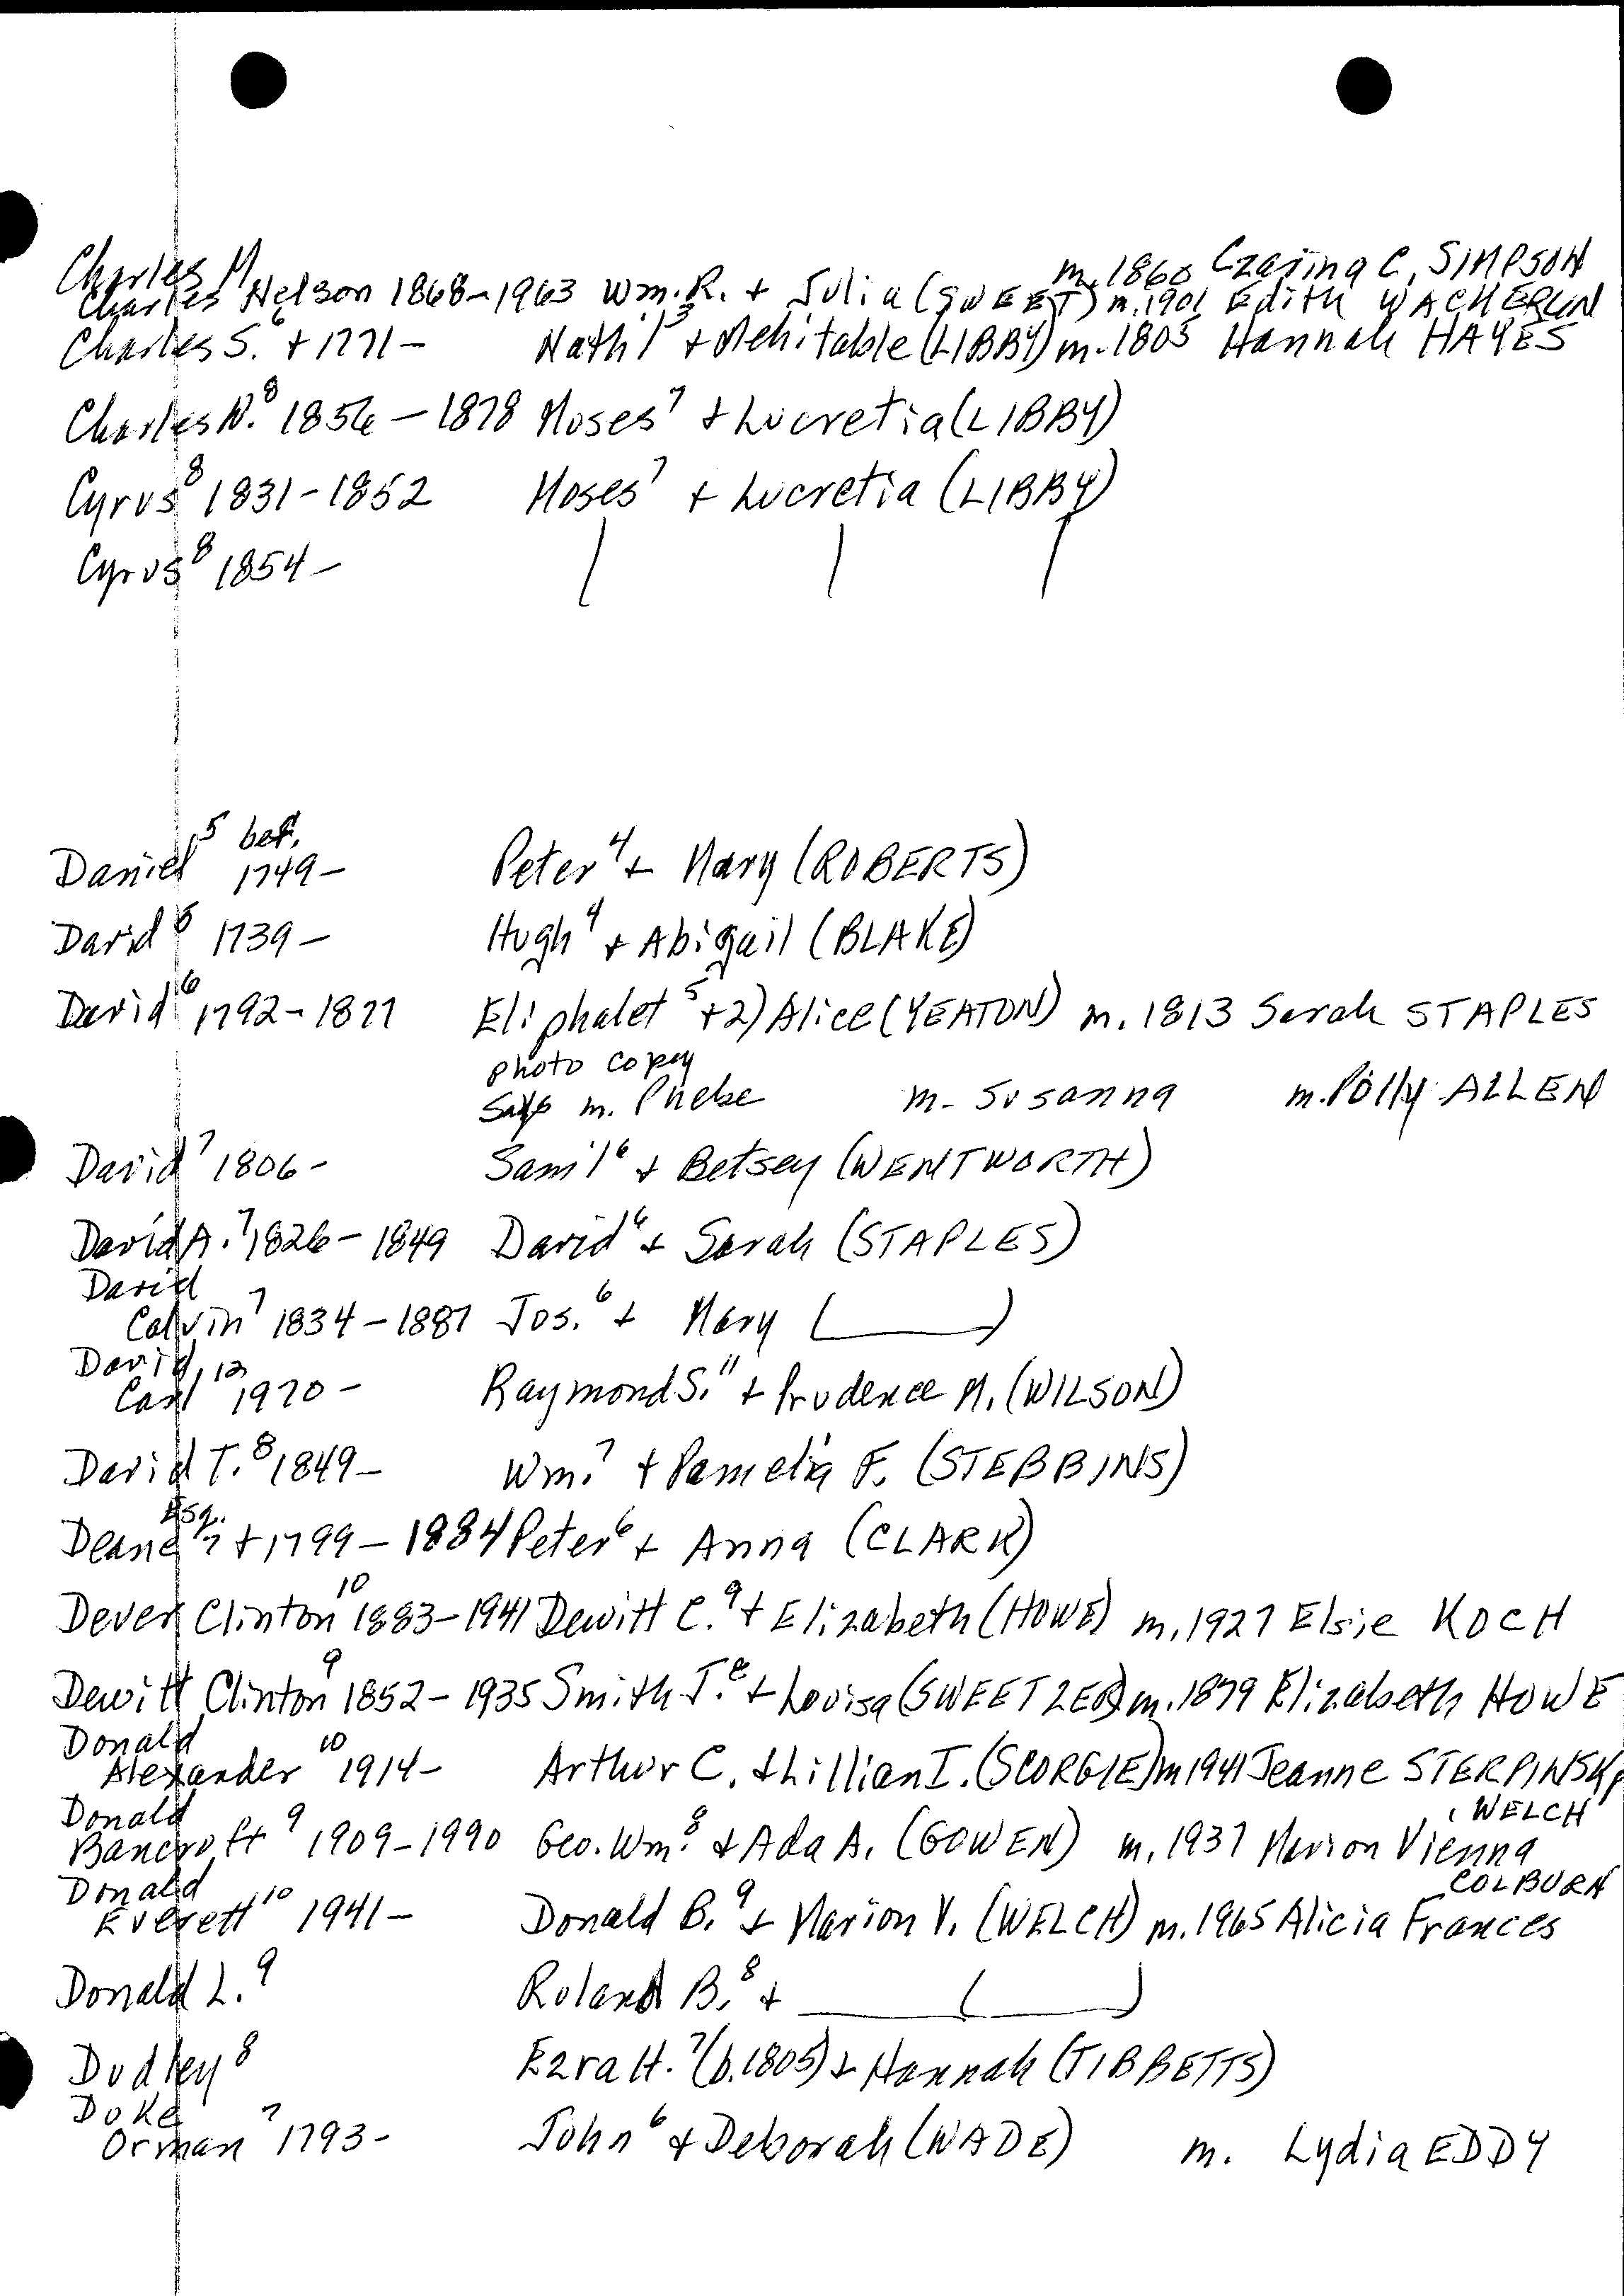 Charles M m. 1860 Czarina C. SIMPSON
Charles Nelson 1868-1963 Wm. R. + Julia (SWEET) m. 1901 Edith WACHERLIN
Charles S.⁶ + 1771- Nath'l⁵ + Mehitable (LIBBY) m. 1805 Hannah HAYES
Charles N.⁸ 1856-1878 Moses⁷ + Lucretia (LIBBY)
Cyrus⁸ 1831-1852 Moses⁷ + Lucretia (LIBBY)
Cyrus⁸ 1854-
Daniel⁵ bef. 1749- Peter⁴ + Mary (ROBERTS)
David⁵ 1739- Hugh⁴ + Abigail (BLAKE)
David⁶ 1792-1877 Eliphalet⁵ + 2) Alice (YEATON) m. 1813 Sarah STAPLES
photo copy
says m. Phebe m. Susanna m. Polly ALLEN
David⁷ 1806- Sam'l⁶ + Betsey (WENTWORTH)
David A.⁷ 1826-1849 David⁶ + Sarah (STAPLES)
David
Calvin⁷ 1834-1887 Jos.⁶ + Mary (____)
David
Carl¹² 1970- Raymond S.¹¹ + Prudence M. (WILSON)
David T.⁸ 1849- Wm.⁷ + Pamelia F. (STEBBINS)
Esq.
Deane⁷ + 1799-1884 Peter⁶ + Anna (CLARK)
Dever Clinton¹⁰ 1883-1941 Dewitt C.⁹ + Elizabeth (HOWE) m. 1927 Elsie KOCH
Dewitt Clinton⁹ 1852-1935 Smith J.⁸ + Lovisa (SWEETZER) m. 1879 Elizabeth HOWE
Donald
Alexander¹⁰ 1914- Arthur C. + Lillian I. (SCORGIE) m 1941 Jeanne STERPINSKY
Donald WELCH
Bancroft⁹ 1909-1990 Geo. Wm.⁸ + Ada A. (GOWEN) m. 1937 Marion Vienna
Donald COLBURN
Everett¹⁰ 1941- Donald B.⁹ + Marion V. (WELCH) m. 1965 Alicia Frances
Donald L.⁹ Roland B.⁸ + ____ (____)
Dudley⁸ Ezra H.⁷ (b. 1805) + Hannah (TIBBETTS)
Duke
Orman⁷ 1793- John⁶ + Deborah (WADE) m. Lydia EDDY